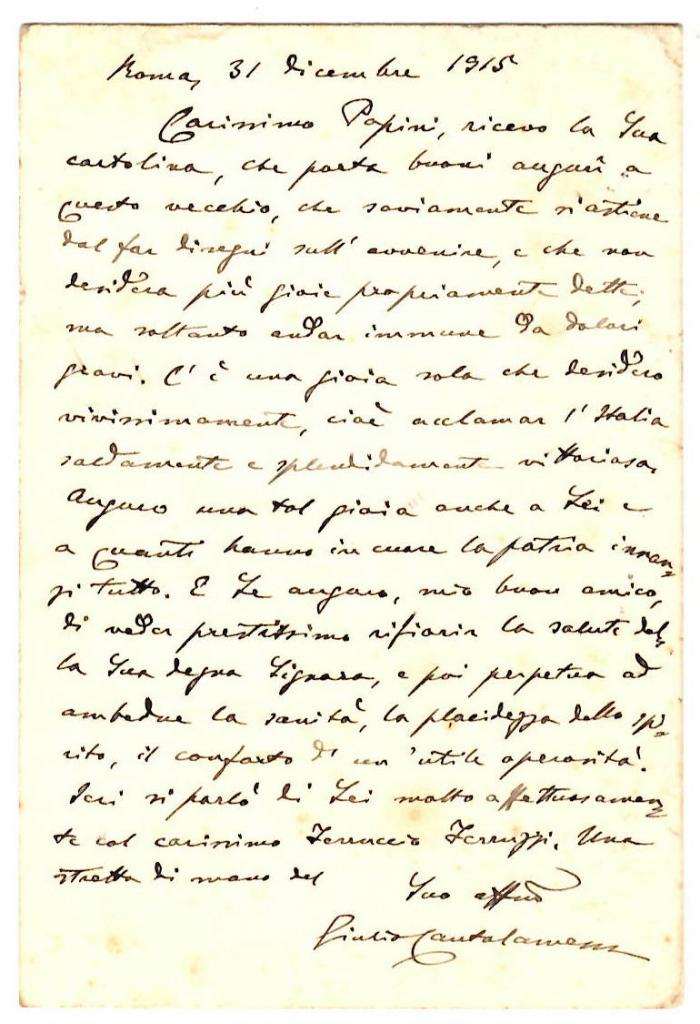 Roma, 31 dicembre 1915
Carissimo Papini, ricevo la Sua
cartolina, che porta buoni augurî a
questo vecchio, che saviamente si astiene
dal far disegni sull'avvenire, e che non
desidera più gioie propriamente dette,
ma soltanto andar immune da dolori
gravi. C'è una gioia sola che desidero
vivissimamente, cioè acclamar l'Italia
saldamente e splendidamente vittoriosa.
Auguro una tal gioia anche a Lei e
a quanti hanno in cuore la patria innan-
zi tutto. E Le auguro, mio buon amico,
di veder prestissimo rifiorir la salute del-
la Sua degna Signora, e poi perpetua ad
ambedue la sanità, la placidezza dello spi-
rito, il conforto d'un'utile operosità.
Ieri si parlò di Lei molto affettuosamen-
te col carissimo Ferruccio Ferruzzi. Una
stretta di mano del
Suo affmo
Giulio Cantalamessa